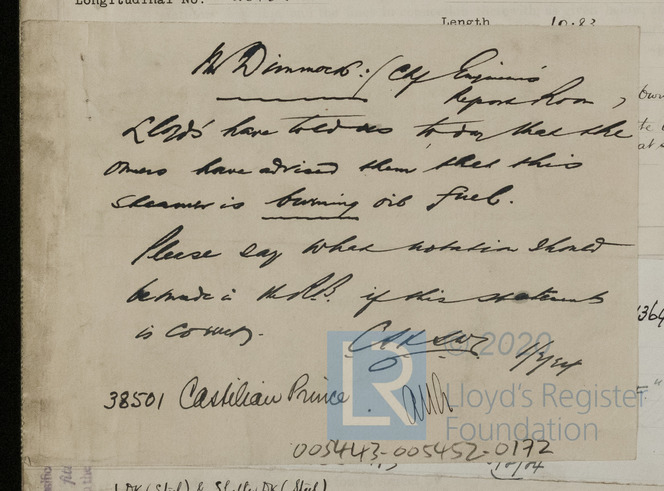 Longitudinal No.
Length 10.83
Mr Dimmock: (Chf Engineers
Report Room)
Lloyds' have told us to-day that the
owners have advised them that this
steamer is burning oil fuel.
Please say what notation should
be made in the R.B. if this statement
is correct.
© 2020
38501 Castilian Prince.
Lloyd's Register
Foundation
005443-005452-0172